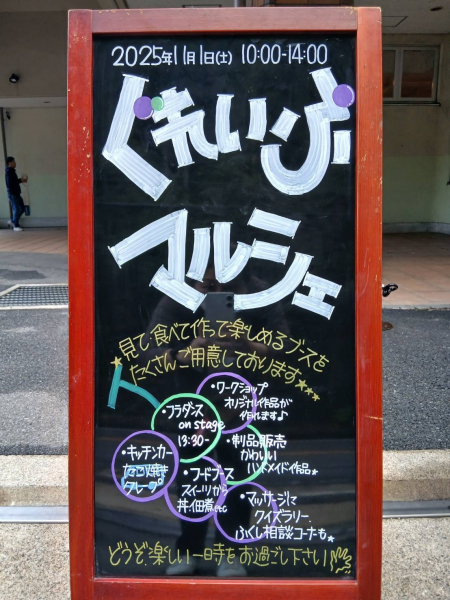 2025年11月1日(土) 10:00-14:00
ぐれいぷ
マルシェ
見て・食べて・作って楽しめるブースを
★たくさんご用意しております★★★
・ワークショップ
オリジナル作品が
作れます♪
・フラダンス
on stage
13:30-
・製品販売
かわいい
ハンドメイド作品★
・キッチンカー
たこ焼き
クレープ
・フードブース
スイーツから
丼・佃煮etc
・マッサージに
クイズラリー、
ふくし相談コーナーも★
どうぞ、楽しい一時をお過ごし下さい